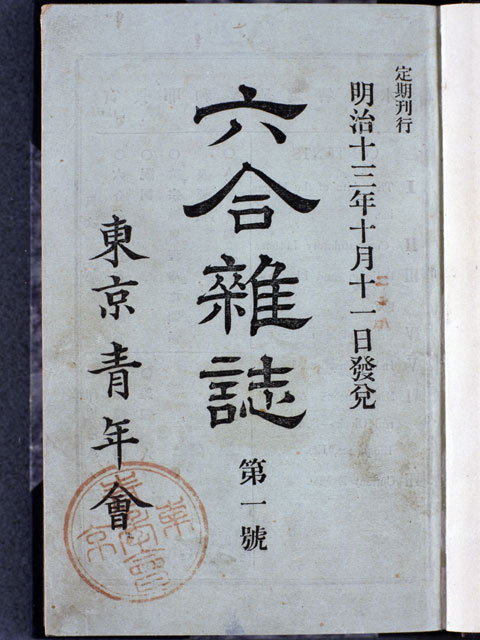 定期刊行
明治十三年十月十一日發兌
六合雜誌
第一號
東京青年會